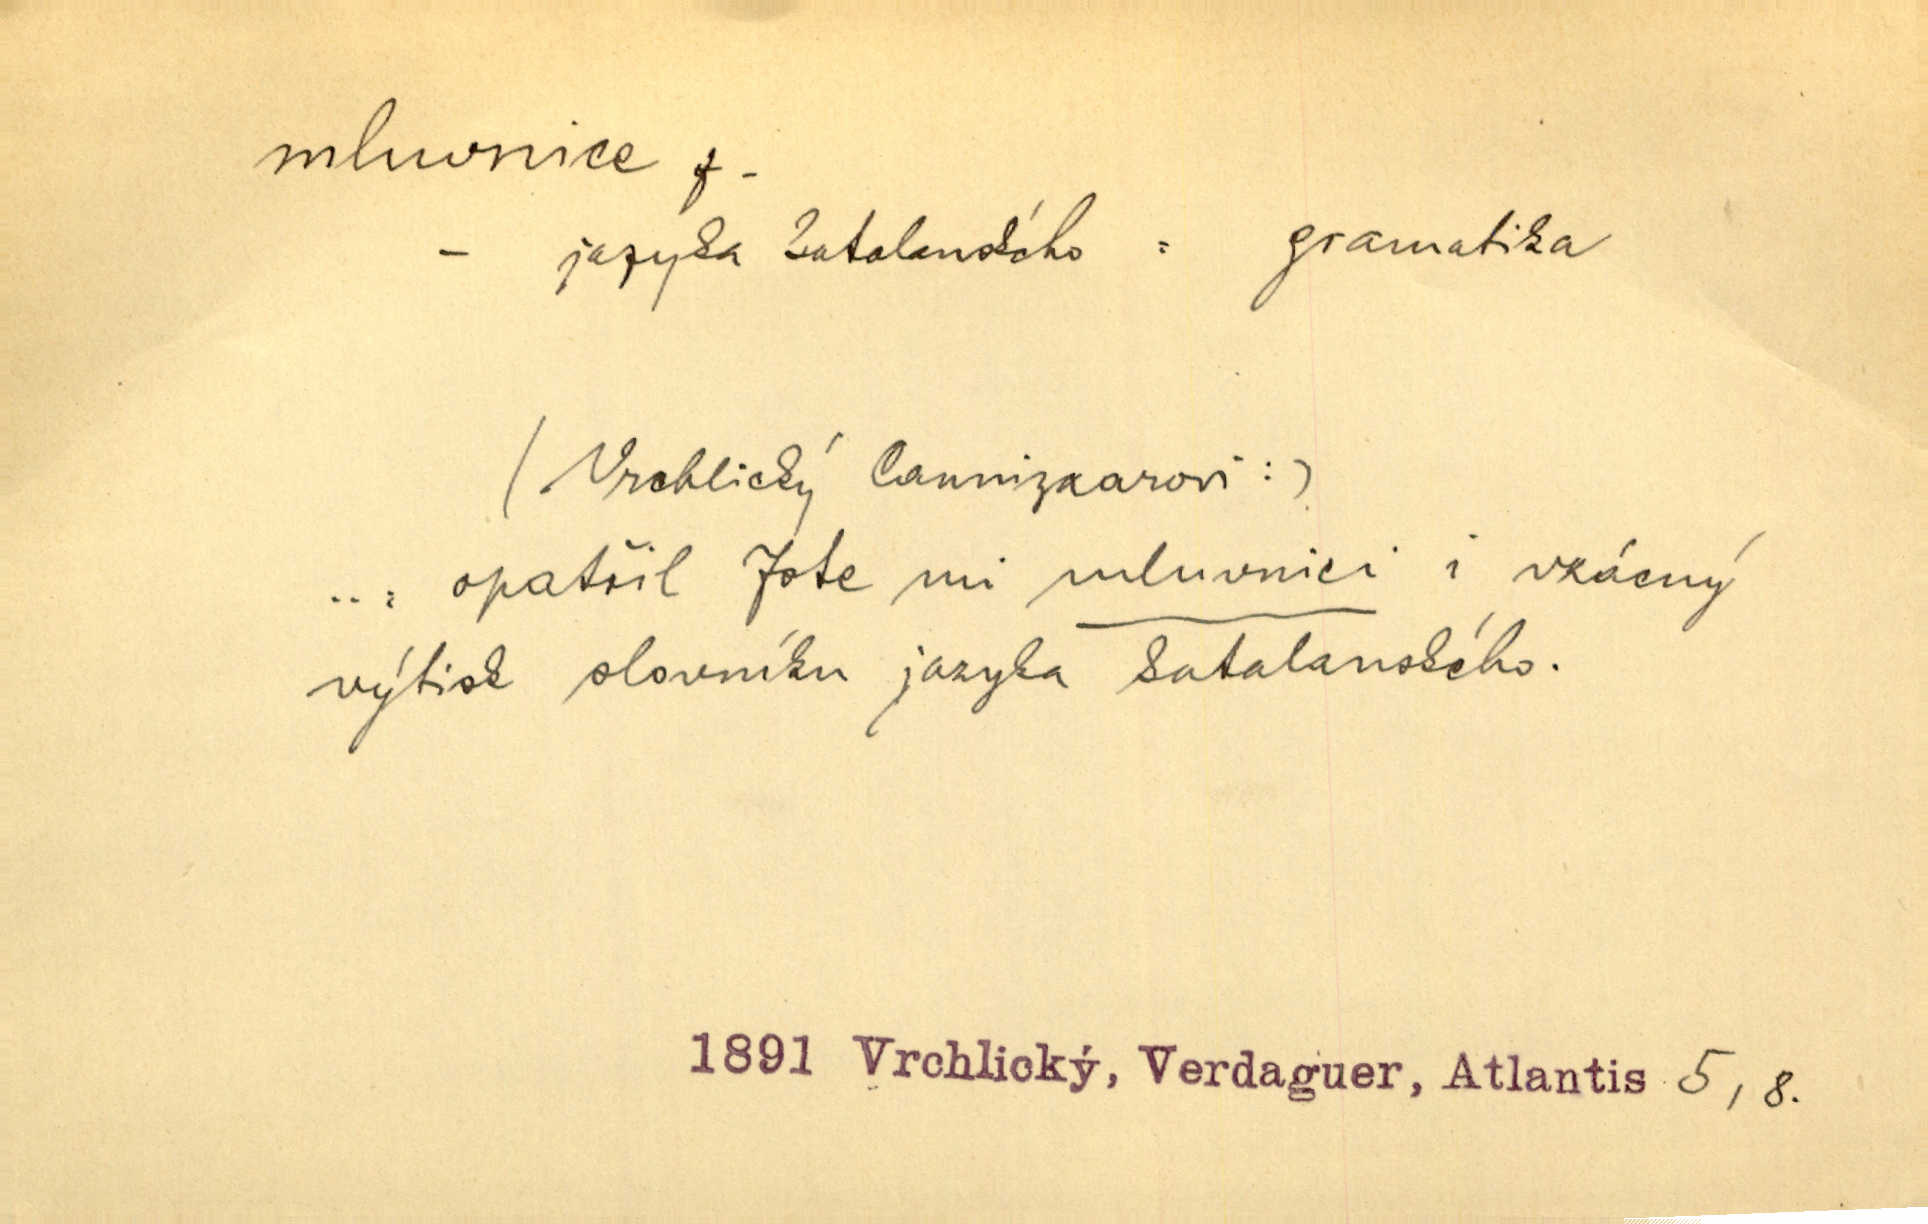 mluvnice f.
- jazyka katalanského = gramatika
(Vrchlický Cannizzarovi:)
... opatřil jste mi mluvnici i vzácný
výtisk slovníku jazyka katalanského.
1891 Vrchlický, Verdaguer, Atlantis 5, 8.